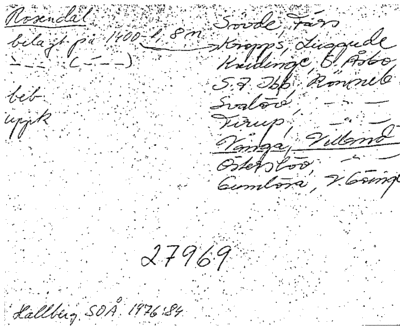 Rosendal
belagt på 1400-t, 8 m
— " — ( — " — )
beb
uppk
Sövde, Färs
Kropps, Luggude
Kvidinge, Ö. Åsbo
S.t Ibb, Rönneb
Svalöv, — " —
Tirup, — " —
Vånga, Villand
Österslöv, — " —
Gumlösa, V. Göinge
27969
Hallberg. SOÅ. 1976:84